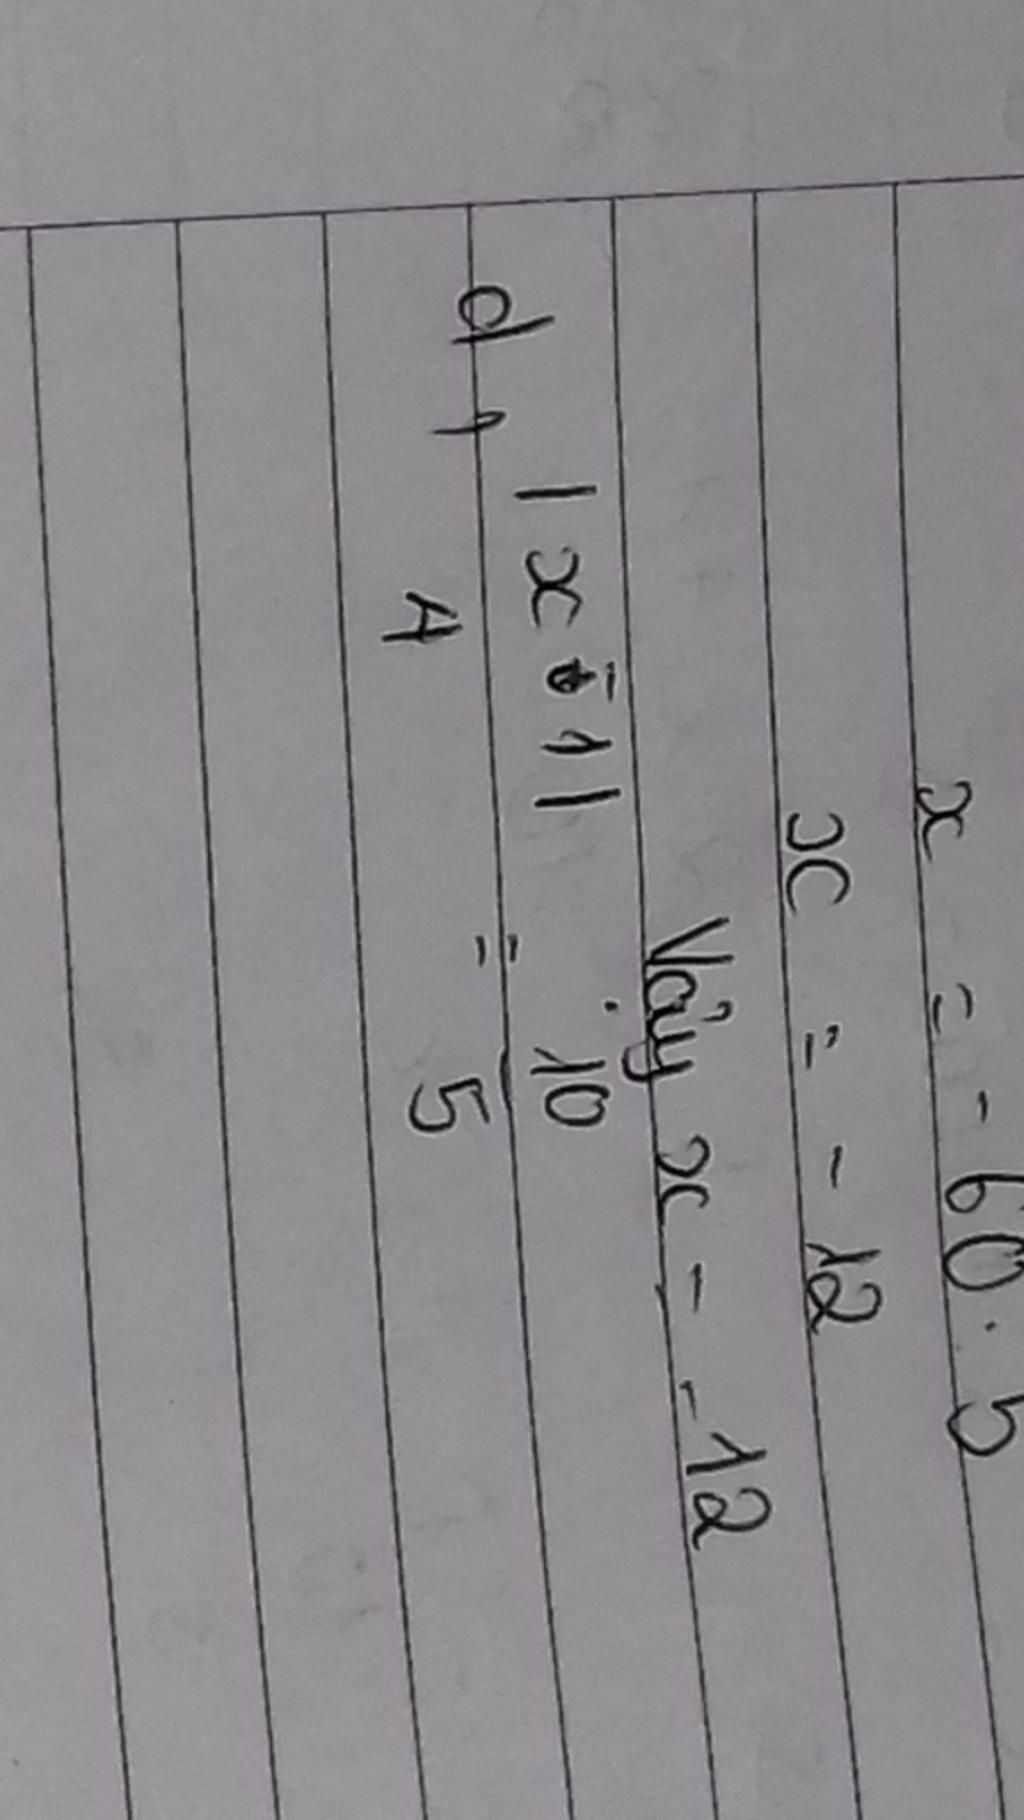 x = - 60 . 5
x = - 12
Vậy x = -12
d, |x - 1| = 10
4 5